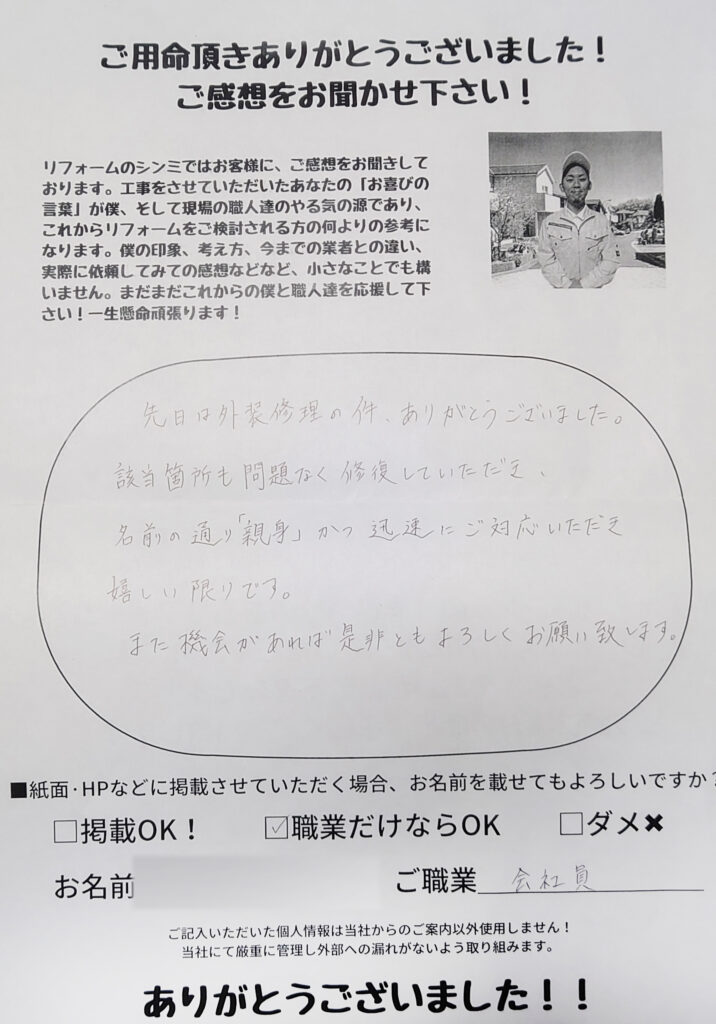 ご用命頂きありがとうございました！
ご感想をお聞かせ下さい！
リフォームのシンミではお客様に、ご感想をお聞きして
おります。工事をさせていただいたあなたの「お喜びの
言葉」が僕、そして現場の職人達のやる気の源であり、
これからリフォームをご検討される方の何よりの参考に
なります。僕の印象、考え方、今までの業者との違い、
実際に依頼してみての感想などなど、小さなことでも構
いません。まだまだこれからの僕と職人達を応援して下
さい！一生懸命頑張ります！
先日は外装修理の件、ありがとうございました。
該当箇所も問題なく修復していただき、
名前の通り「親身」かつ迅速にご対応いただき
嬉しい限りです。
また機会があれば是非ともよろしくお願い致します。
■紙面･HPなどに掲載させていただく場合、お名前を載せてもよろしいですか？
□掲載OK！ ☑職業だけならOK □ダメ✖
お名前 ご職業 会社員
ご記入いただいた個人情報は当社からのご案内以外使用しません！
当社にて厳重に管理し外部への漏れがないよう取り組みます。
ありがとうございました！！